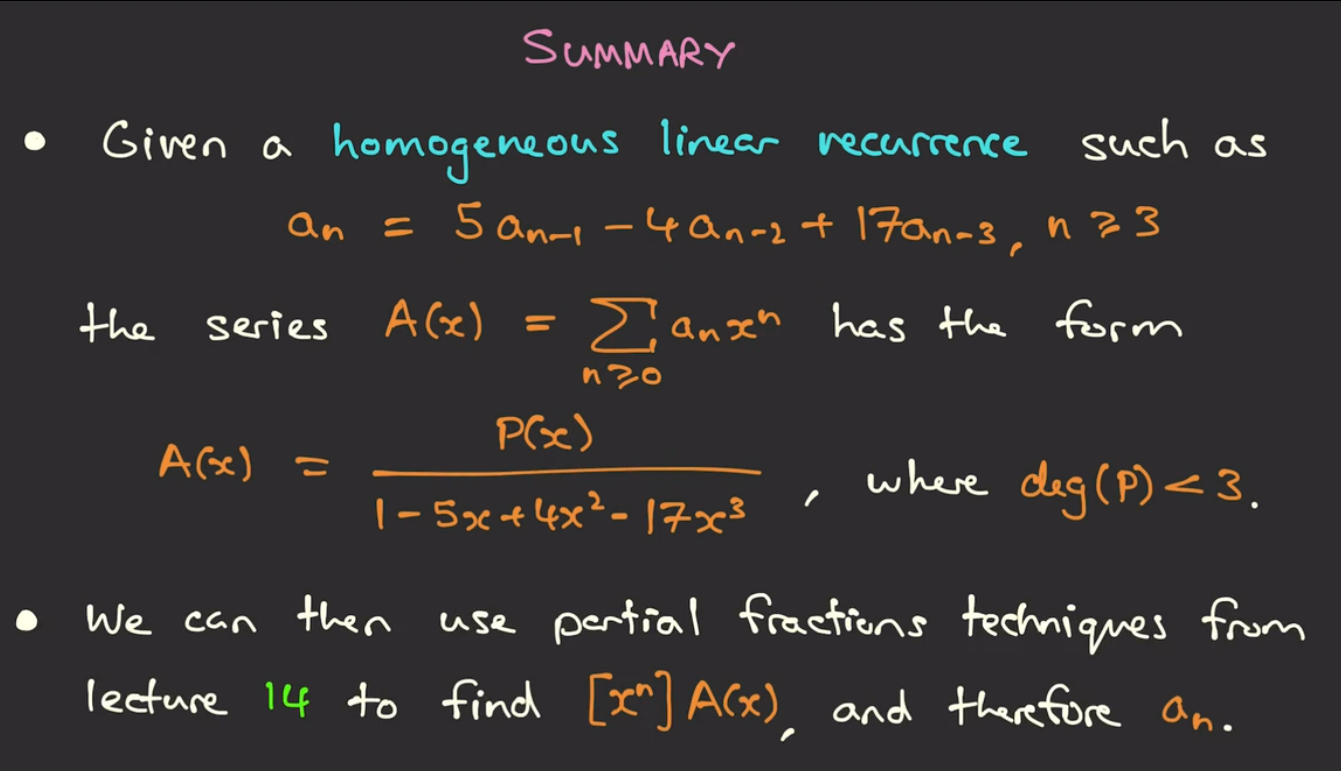 SUMMARY
• Given a homogeneous linear recurrence such as
aₙ = 5aₙ₋₁ − 4aₙ₋₂ + 17aₙ₋₃, n ⩾ 3
the series A(x) = ∑ aₙxⁿ has the form
n⩾0
P(x)
A(x) = ―――, where deg(P) < 3.
1 − 5x + 4x² − 17x³
• We can then use partial fractions techniques from
lecture 14 to find [xⁿ] A(x), and therefore aₙ.